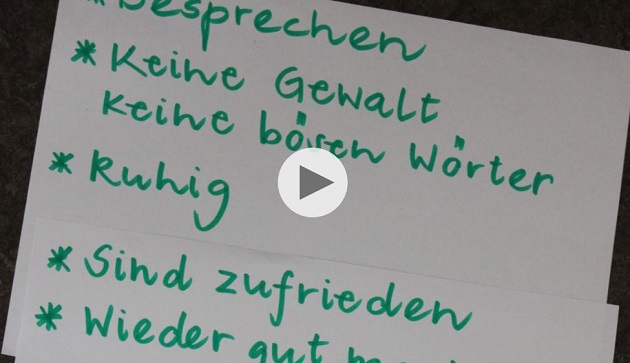 * Besprechen
* Keine Gewalt
Keine bösen Wörter
* Ruhig
* Sind zufrieden
* Wieder gut